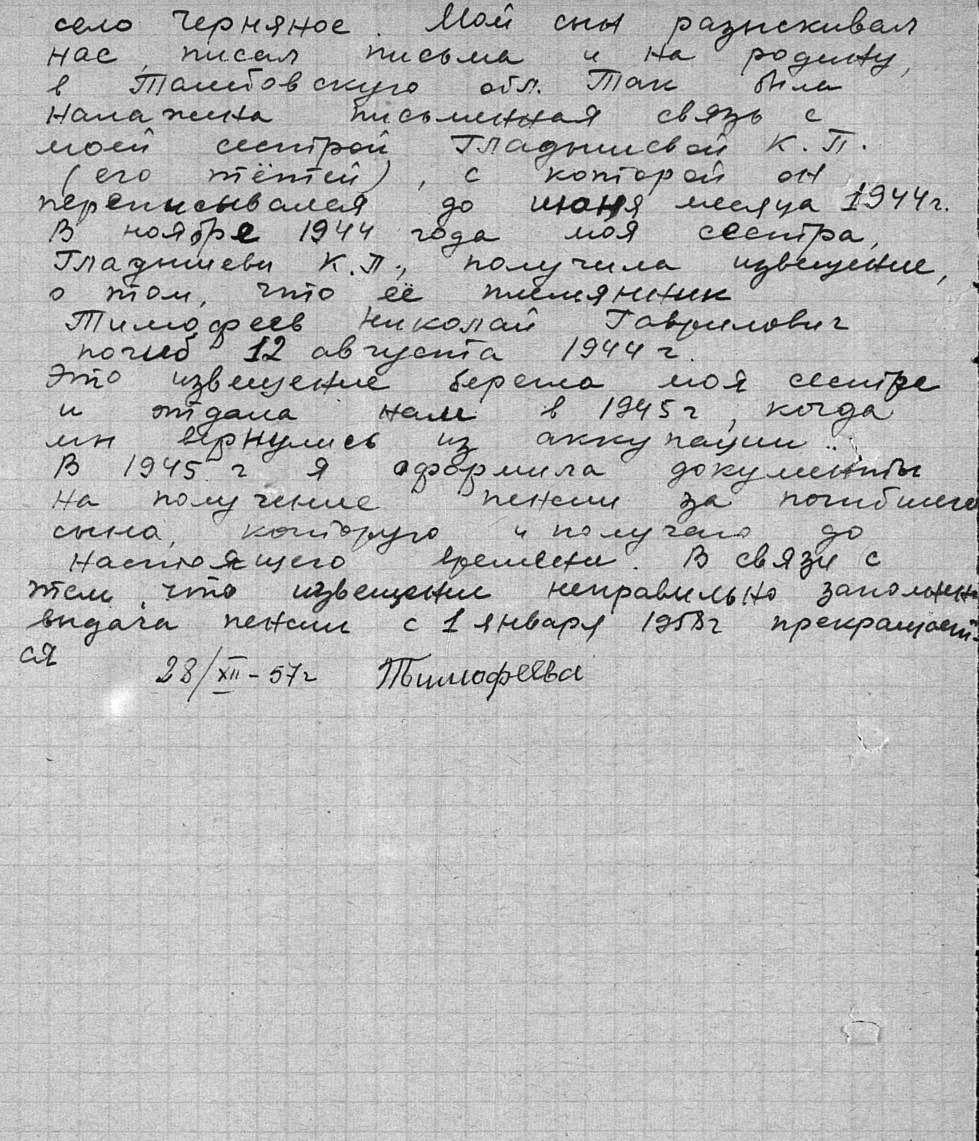 село Черняное. Мой сын разыскивал
нас, писал письма и на родину,
в Тамбовскую обл. Так была
налажена письменная связь с
моей сестрой Гладышевой К.П.
(его тётей), с которой он
переписывался до июня месяца 1944г.
В ноябре 1944 года моя сестра,
Гладышева К.П., получила извещение,
о том, что её племянник
Тимофеев Николай Гаврилович
погиб 12 августа 1944 г.
Это извещение берегла моя сестра
и отдала нам в 1945 г, когда
мы вернулись из аккупации.
В 1945 г я оформила документы
на получение пенсии за погибшего
сына, которую и получаю до
настоящего времени. В связи с
тем, что извещение неправильно заполнен
выдача пенсии с 1 января 1958г прекращает-
ся
28/XII-57г Тимофеева